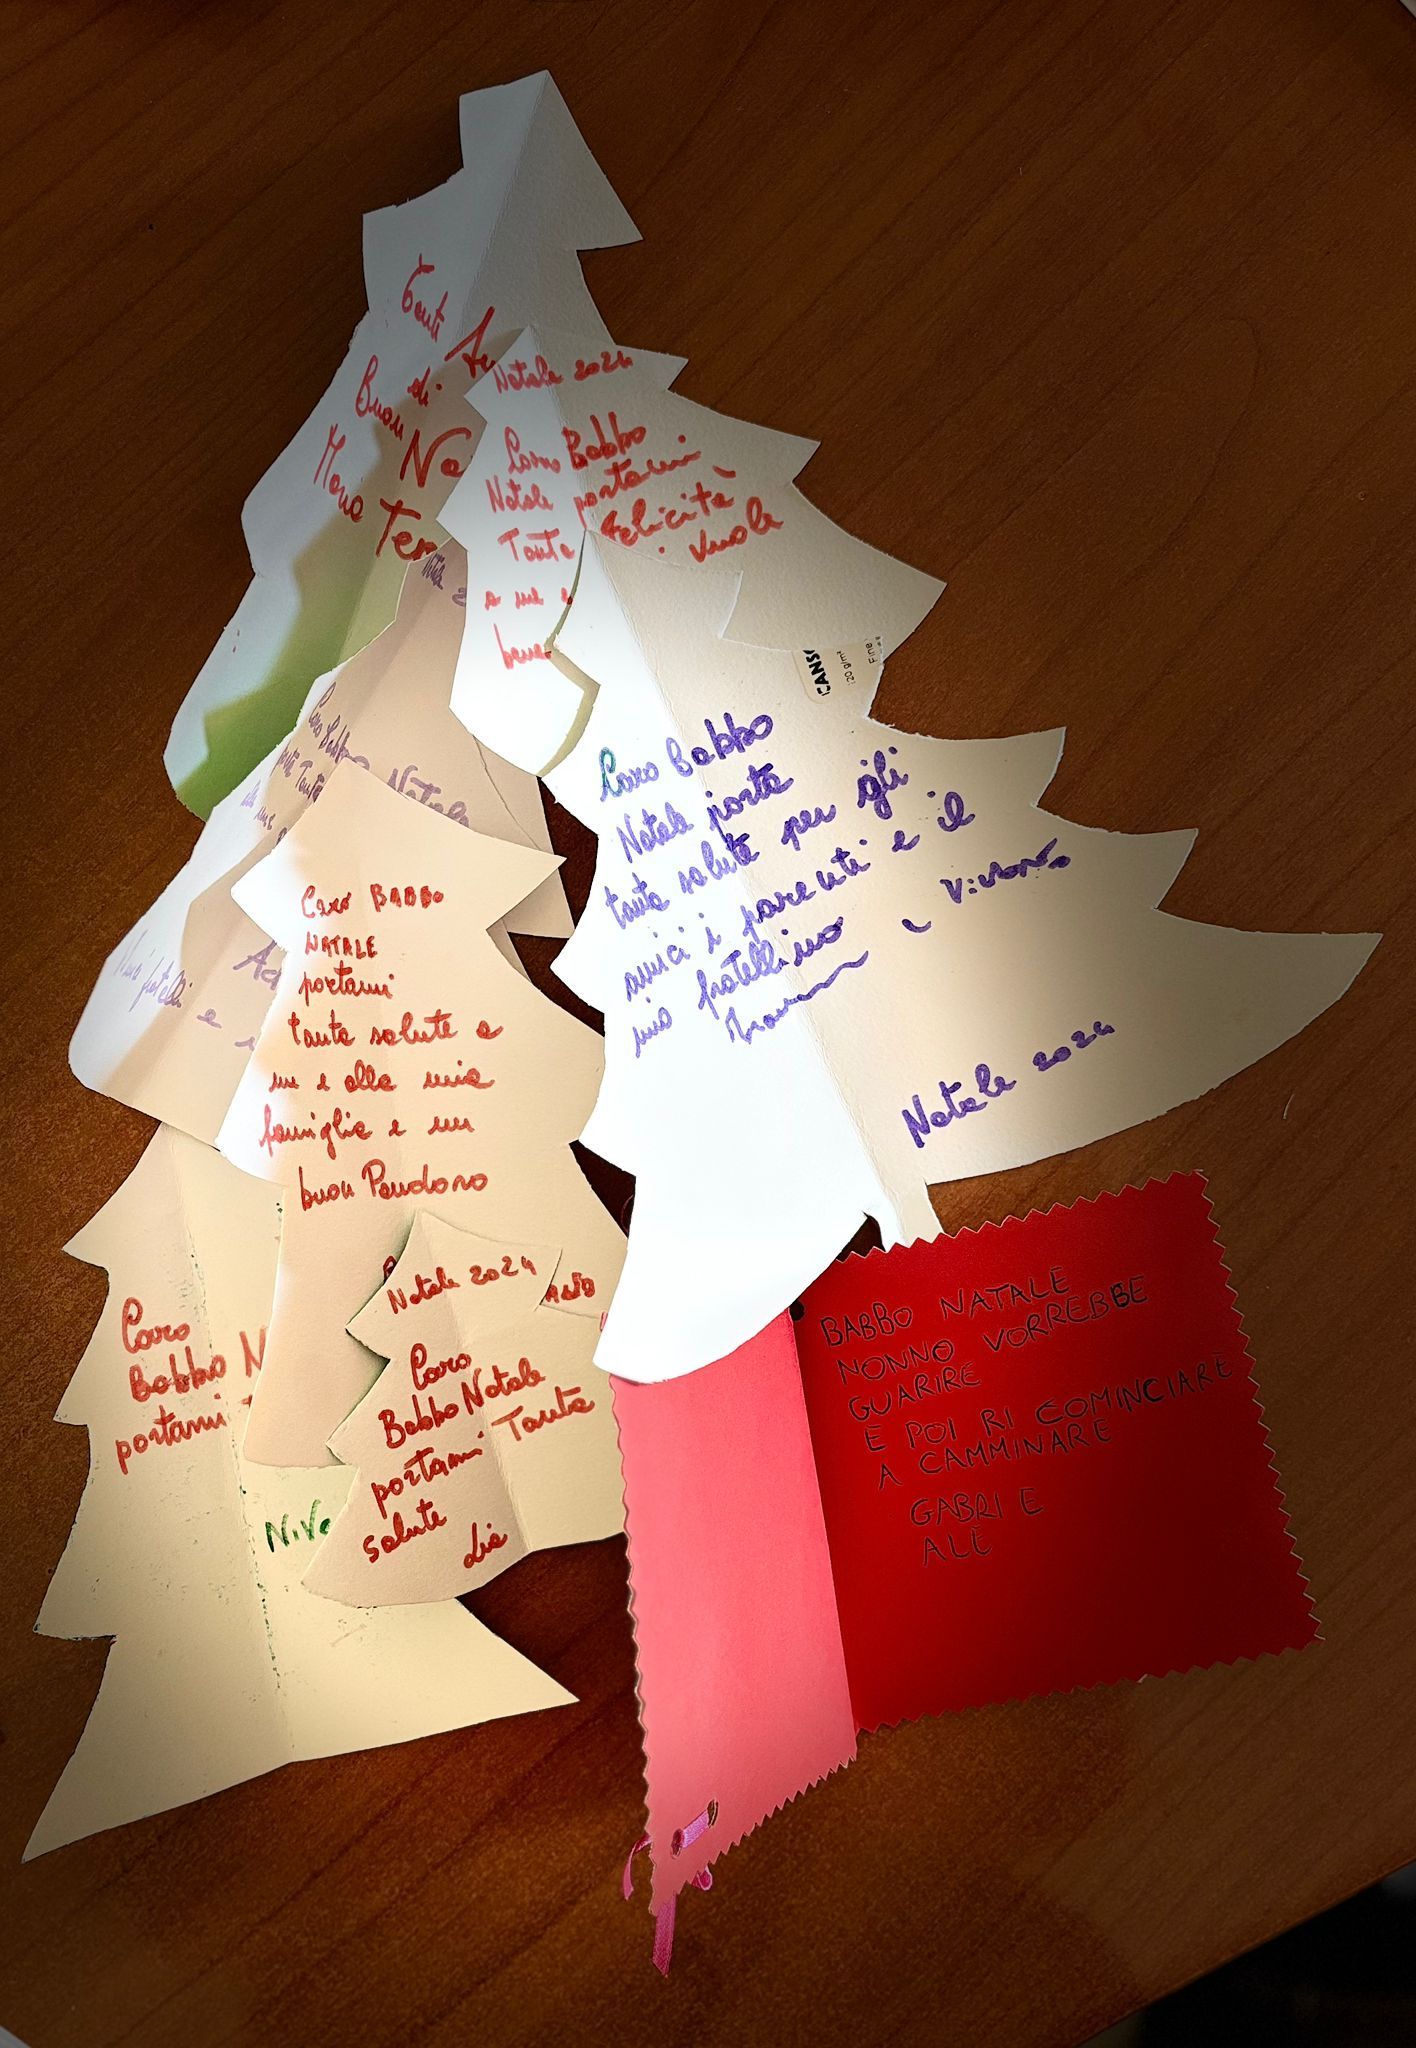 Tanti
di
Buon
Maria Ter
Natale 2024
Caro Babbo
Natale portami
Tanta felicità
a me e
vuole
bene
CANS
20 g/m²
Fine
Caro Babbo
Natale porta
tanta salute per gli
amici i parenti e il
mio fratellino
Natale 2024
Caro Babbo Natale
Tanta
Caro BABBO
NATALE
portami
tanta salute a
me e alla mia
famiglia e un
buon Pandoro
Caro
Babbo N
portami
Natale 2024
Caro
Babbo Natale
portami Tanta
salute
BABBO NATALE
NONNO VORREBBE
GUARIRE
E POI RI COMINCIARE
A CAMMINARE
GABRI E
ALE